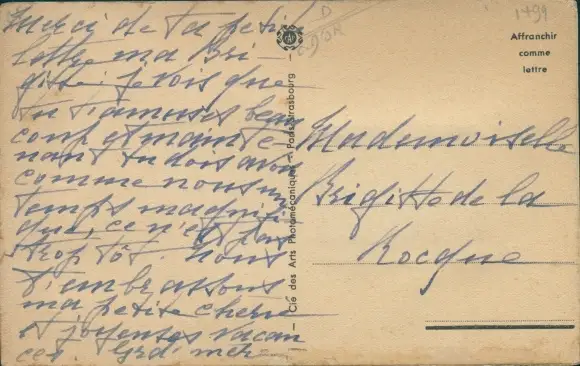 Merci de ta petite
lettre ma Bri-
gitte. je vois que
tu t'amuses beau
coup et mainte-
nant tu dois avoir
comme nous un
temps magnifi
que, ce n'est pas
trop tôt. Nous
t'embrassons
ma petite cherie
et joyeuses vacan
ces. Grd' mère
Cie des Arts Photomécaniques - Paris-Strasbourg
D
1499
Affranchir
comme
lettre
Mademoiselle
Brigitte de la
Rocque